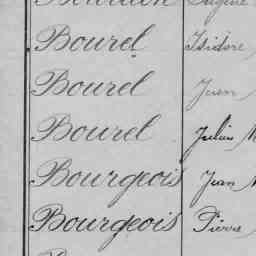 Eugène
Bourel Isidore
Bourel Jean
Bourel Julien
Bourgeois Jean
Bourgeois Pierre